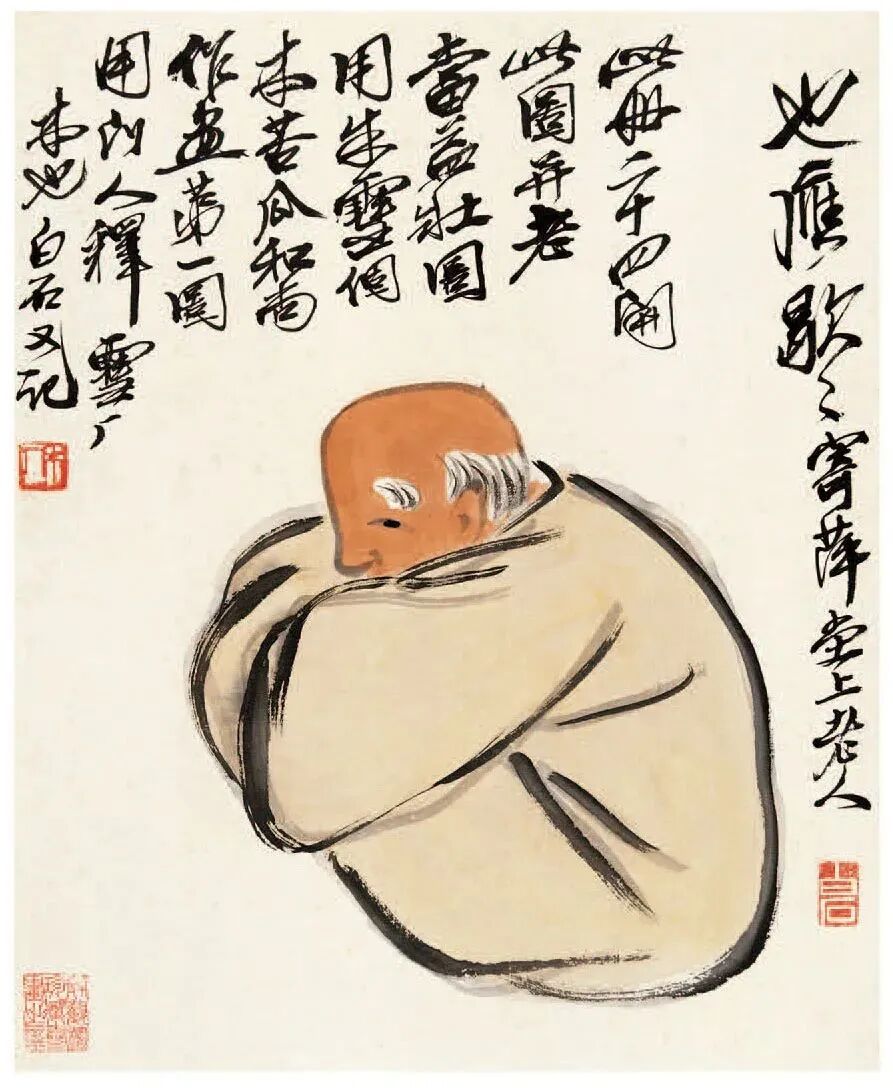 也應歇〻寄萍堂上老人
此冊二十四開
此圖并老
當益壯圖
用朱雪個
本苦瓜和尚
作畫第一圖
用門人釋雪厂
本也白石又記